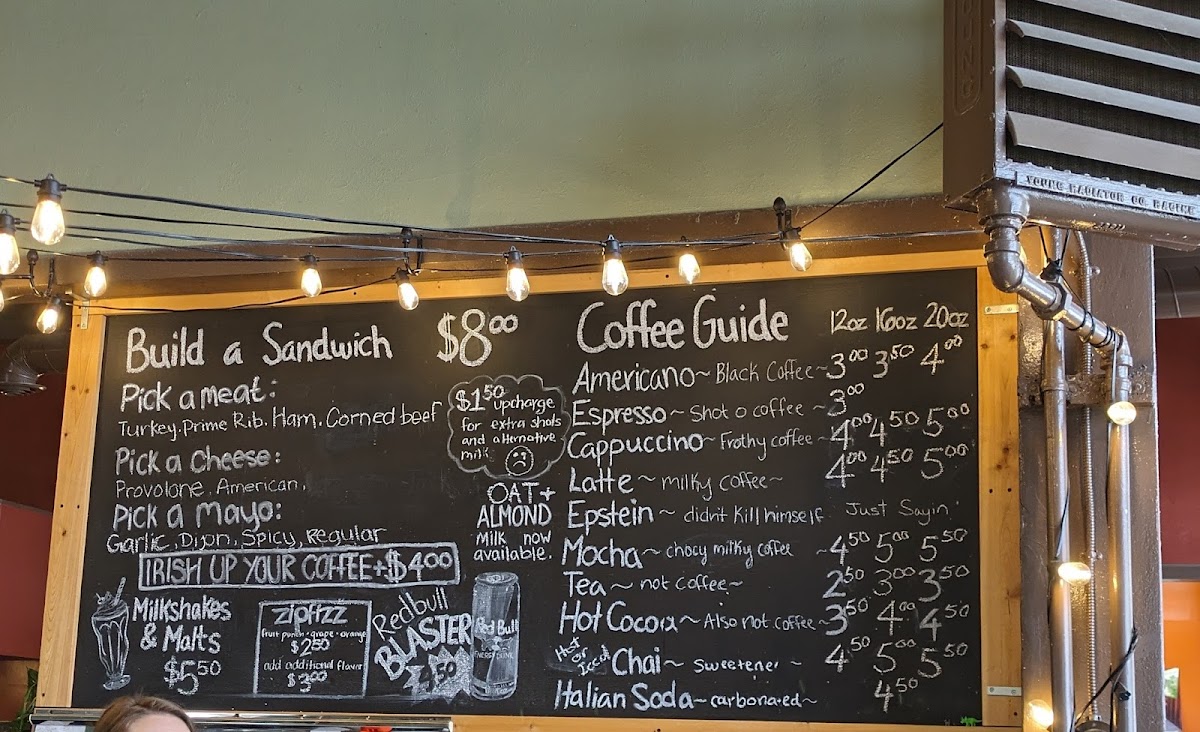 Build a Sandwich $8.00
Pick a meat:
Turkey, Prime Rib, Ham, Corned beef
Pick a Cheese:
Provolone, American,
Pick a mayo:
Garlic, Dijon, Spicy, regular
IRISH UP YOUR COFFEE + $4.00
$1.50 upcharge
for extra shots
and alternative
milk
OAT +
ALMOND
milk now
available.
Milkshakes
& Malts
$5.50
zipfizz
fruit punch · grape · orange
$2.50
add additional flavor
$3.00
Redbull
BLASTER
4.50
Red Bull
ENERGY DRINK
Coffee Guide 12oz 16oz 20oz
Americano ~ Black Coffee ~ 3.00 3.50 4.00
Espresso ~ Shot o coffee ~ 3.00
Cappuccino ~ Frothy coffee ~ 4.00 4.50 5.00
Latte ~ milky coffee ~ 4.00 4.50 5.00
Epstein ~ didn't kill himself Just Sayin
Mocha ~ chocy milky coffee ~ 4.50 5.00 5.50
Tea ~ not coffee ~ 2.50 3.00 3.50
Hot Cocoa ~ Also not coffee ~ 3.50 4.00 4.50
Hot or Iced Chai ~ sweetener ~ 4.50 5.00 5.50
Italian Soda ~ carbonated ~ 4.50
YOUNG RADIATOR CO. RACINE